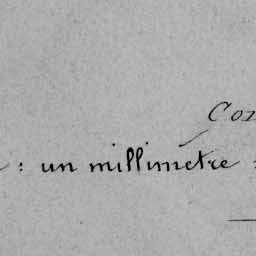 Con
: un millimètre :